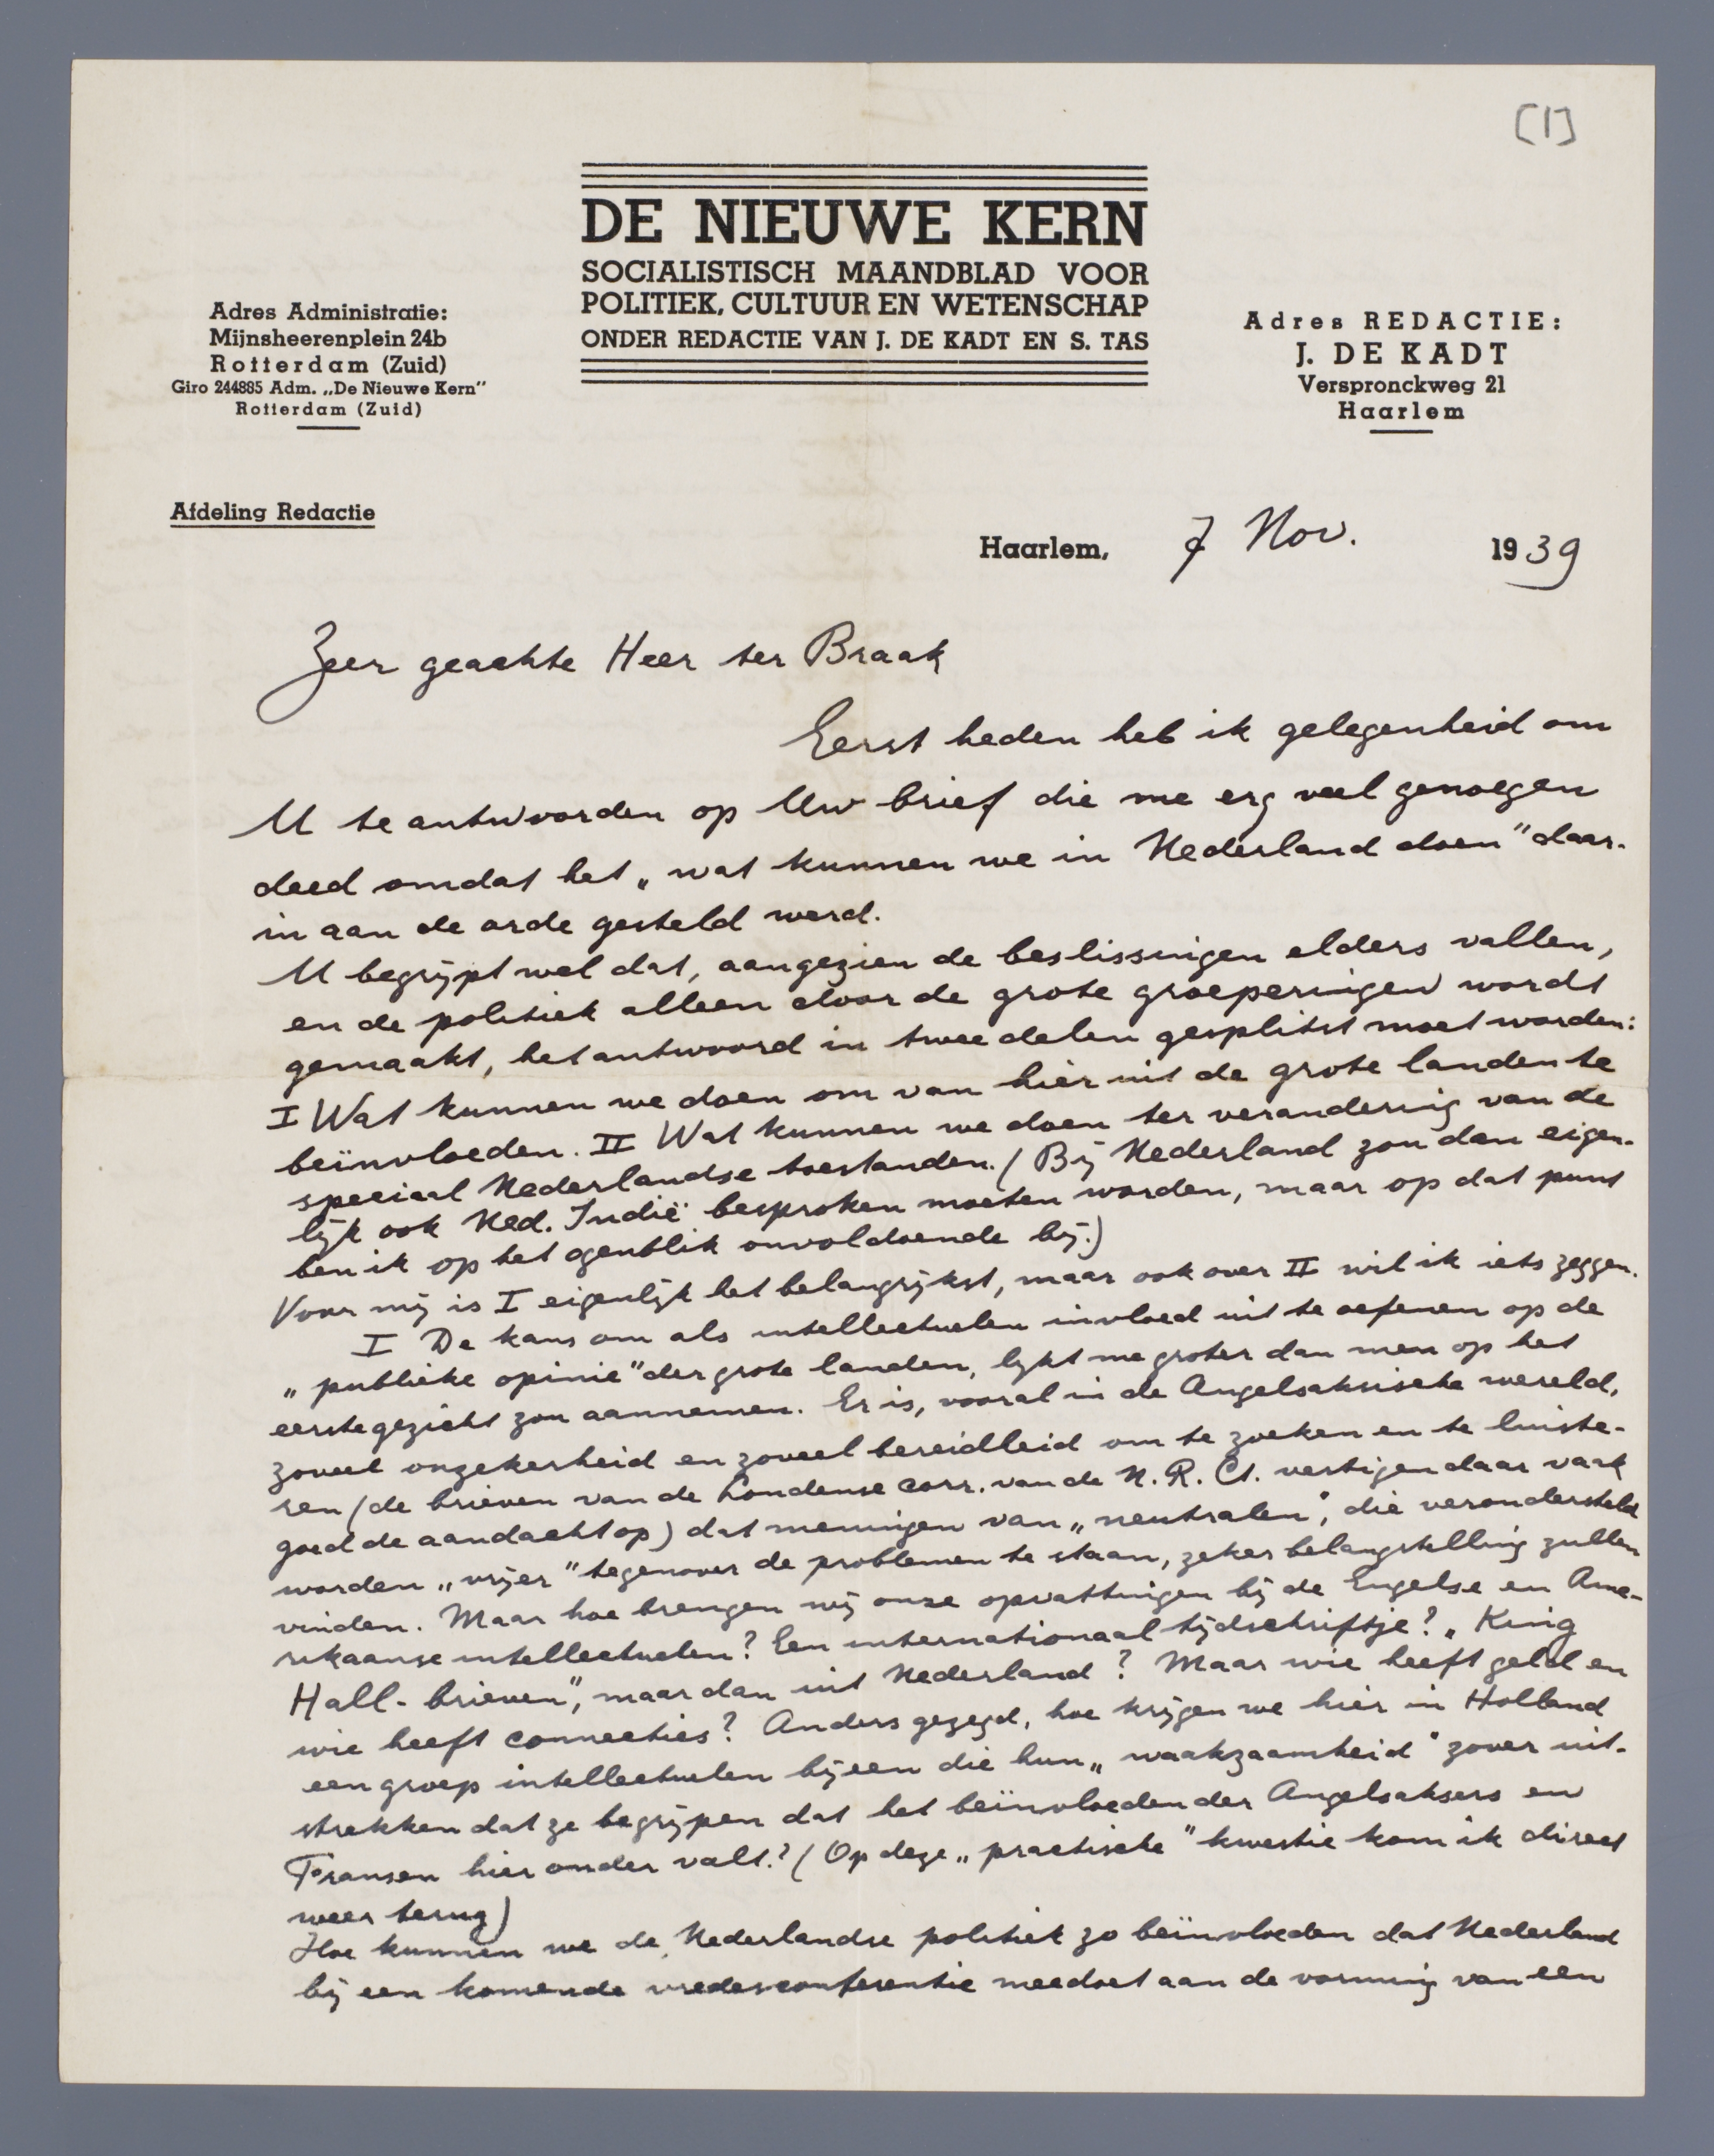 [1]
DE NIEUWE KERN
SOCIALISTISCH MAANDBLAD VOOR
POLITIEK, CULTUUR EN WETENSCHAP
ONDER REDACTIE VAN J. DE KADT EN S. TAS
Adres Administratie:
Mijnsheerenplein 24b
Rotterdam (Zuid)
Giro 244885 Adm. „De Nieuwe Kern"
Rotterdam (Zuid)
Adres REDACTIE:
J. DE KADT
Verspronckweg 21
Haarlem
Afdeling Redactie
Haarlem, 7 Nov. 1939
Zeer geachte Heer ter Braak
Eerst heden heb ik gelegenheid om
U te antwoorden op Uw brief die me erg veel genoegen
deed omdat het „wat kunnen we in Nederland doen" daar-
in aan de orde gesteld werd.
U begrijpt wel dat, aangezien de beslissingen elders vallen,
en de politiek alleen door de grote groeperingen wordt
gemaakt, het antwoord in twee delen gesplitst moet worden:
I Wat kunnen we doen om van hier uit de grote landen te
beïnvloeden. II Wat kunnen we doen ter verandering van de
speciaal Nederlandse toestanden. (Bij Nederland zou dan eigen-
lijk ook Ned. Indië besproken moeten worden, maar op dat punt
ben ik op het ogenblik onvoldoende bij.)
Voor mij is I eigenlijk het belangrijkst, maar ook over II wil ik iets zeggen.
I De kans om als intellectuelen invloed uit te oefenen op de
„publieke opinie" der grote landen, lijkt me groter dan men op het
eerste gezicht zou aannemen. Er is, vooral in de Angelsaksische wereld,
zoveel onzekerheid en zoveel bereidheid om te zoeken en te luiste-
ren (de brieven van de Londense corr. van de N.R.Ct. vestigen daar vaak
goed de aandacht op) dat meningen van „neutralen", die verondersteld
worden „vrijer" tegenover de problemen te staan, zeker belangstelling zullen
vinden. Maar hoe brengen wij onze opvattingen bij de Engelse en Ame-
rikaanse intellectuelen? Een internationaal tijdschriftje? „King
Hall-brieven", maar dan uit Nederland? Maar wie heeft geld en
wie heeft connecties? Anders gezegd, hoe krijgen we hier in Holland
een groep intellectuelen bijeen die hun „waakzaamheid" zover uit-
strekken dat ze begrijpen dat het beïnvloeden der Angelsaksers en
Fransen hier onder valt? (Op deze „practische" kwestie kom ik direct
weer terug)
Hoe kunnen we de Nederlandse politiek zo beïnvloeden dat Nederland
bij een komende vredesconferentie meedoet aan de vorming van een